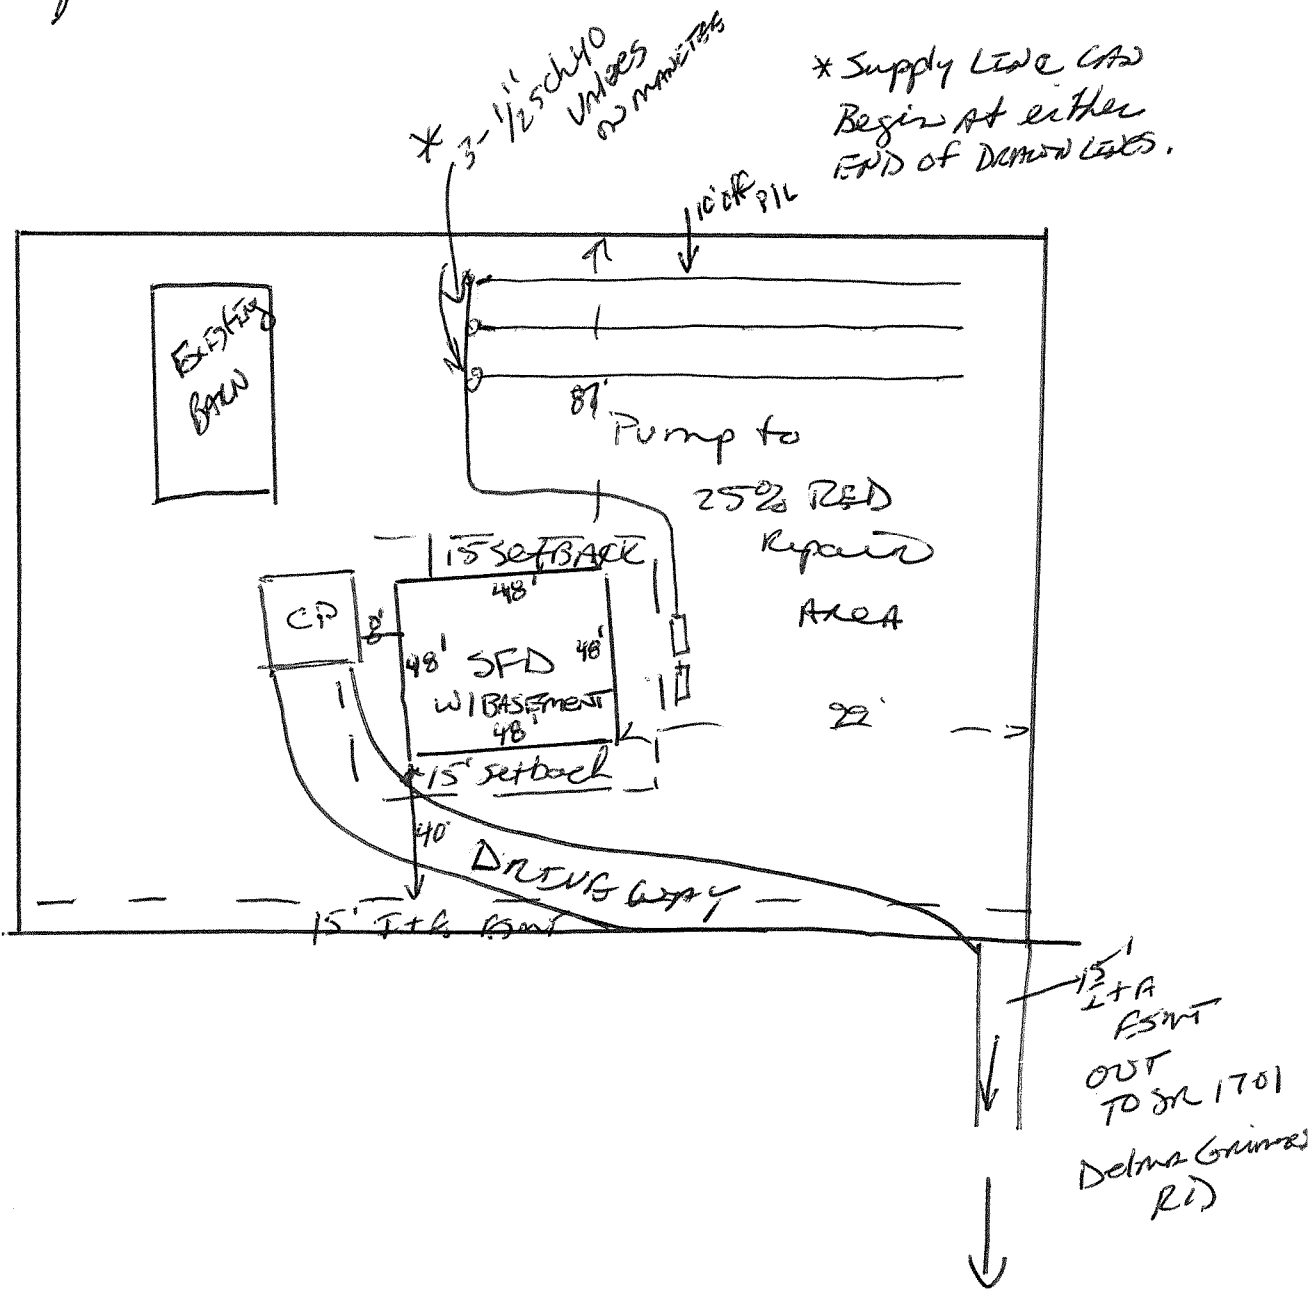 * 3-1/2" sch 40
valves
on manifold
* Supply Line CAN
Begin At either
END OF DRAWN LINES.
10' off P/L
Existing
BARN
87'
Pump to
25% RED
Repair
Area
15' SetBACK
48'
CP
8'
48' SFD 48'
W/ BASEMENT
48'
15' Setback
40'
DRIVEWAY
15' I+E ESMT
15'
ESMT
OUT
TO SR 1701
Delma Grimes
RD